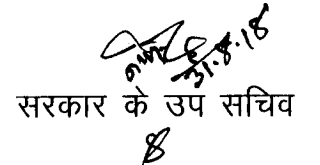 31.8.18
सरकार के उप सचिव